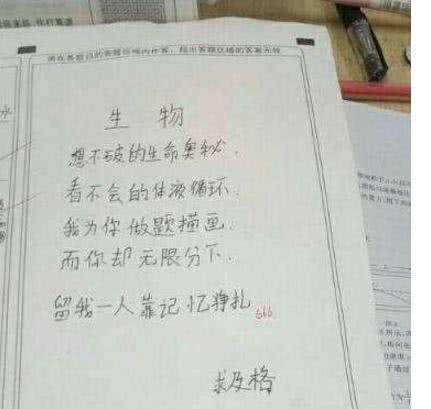 请在各题目的答题区域内作答，超出答题区域的答案无效
生 物
想不破的生命奥秘.
看不会的体液循环.
我为你做题描画.
而你却无限分下.
留我一人靠记忆挣扎
666
求及格